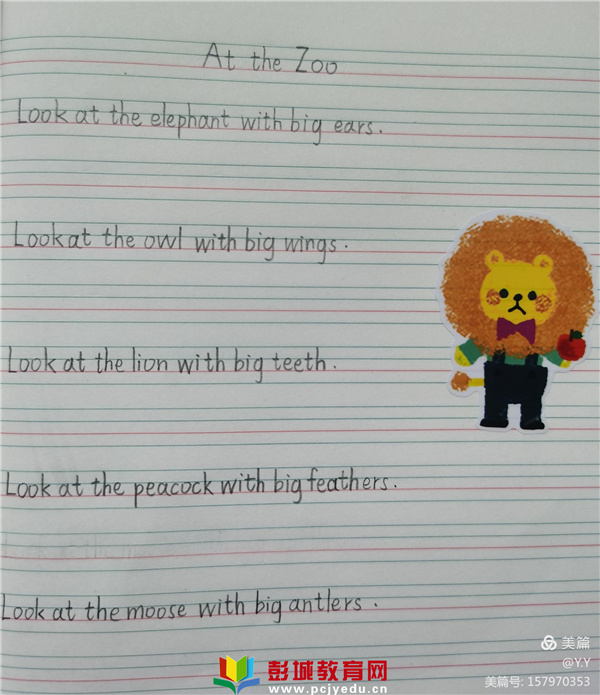 At the Zoo
Look at the elephant with big ears.
Look at the owl with big wings.
Look at the lion with big teeth.
Look at the peacock with big feathers.
Look at the moose with big antlers.
美篇
@Y.Y
美篇号: 157970353
彭城教育网
www.pcjyedu.cn